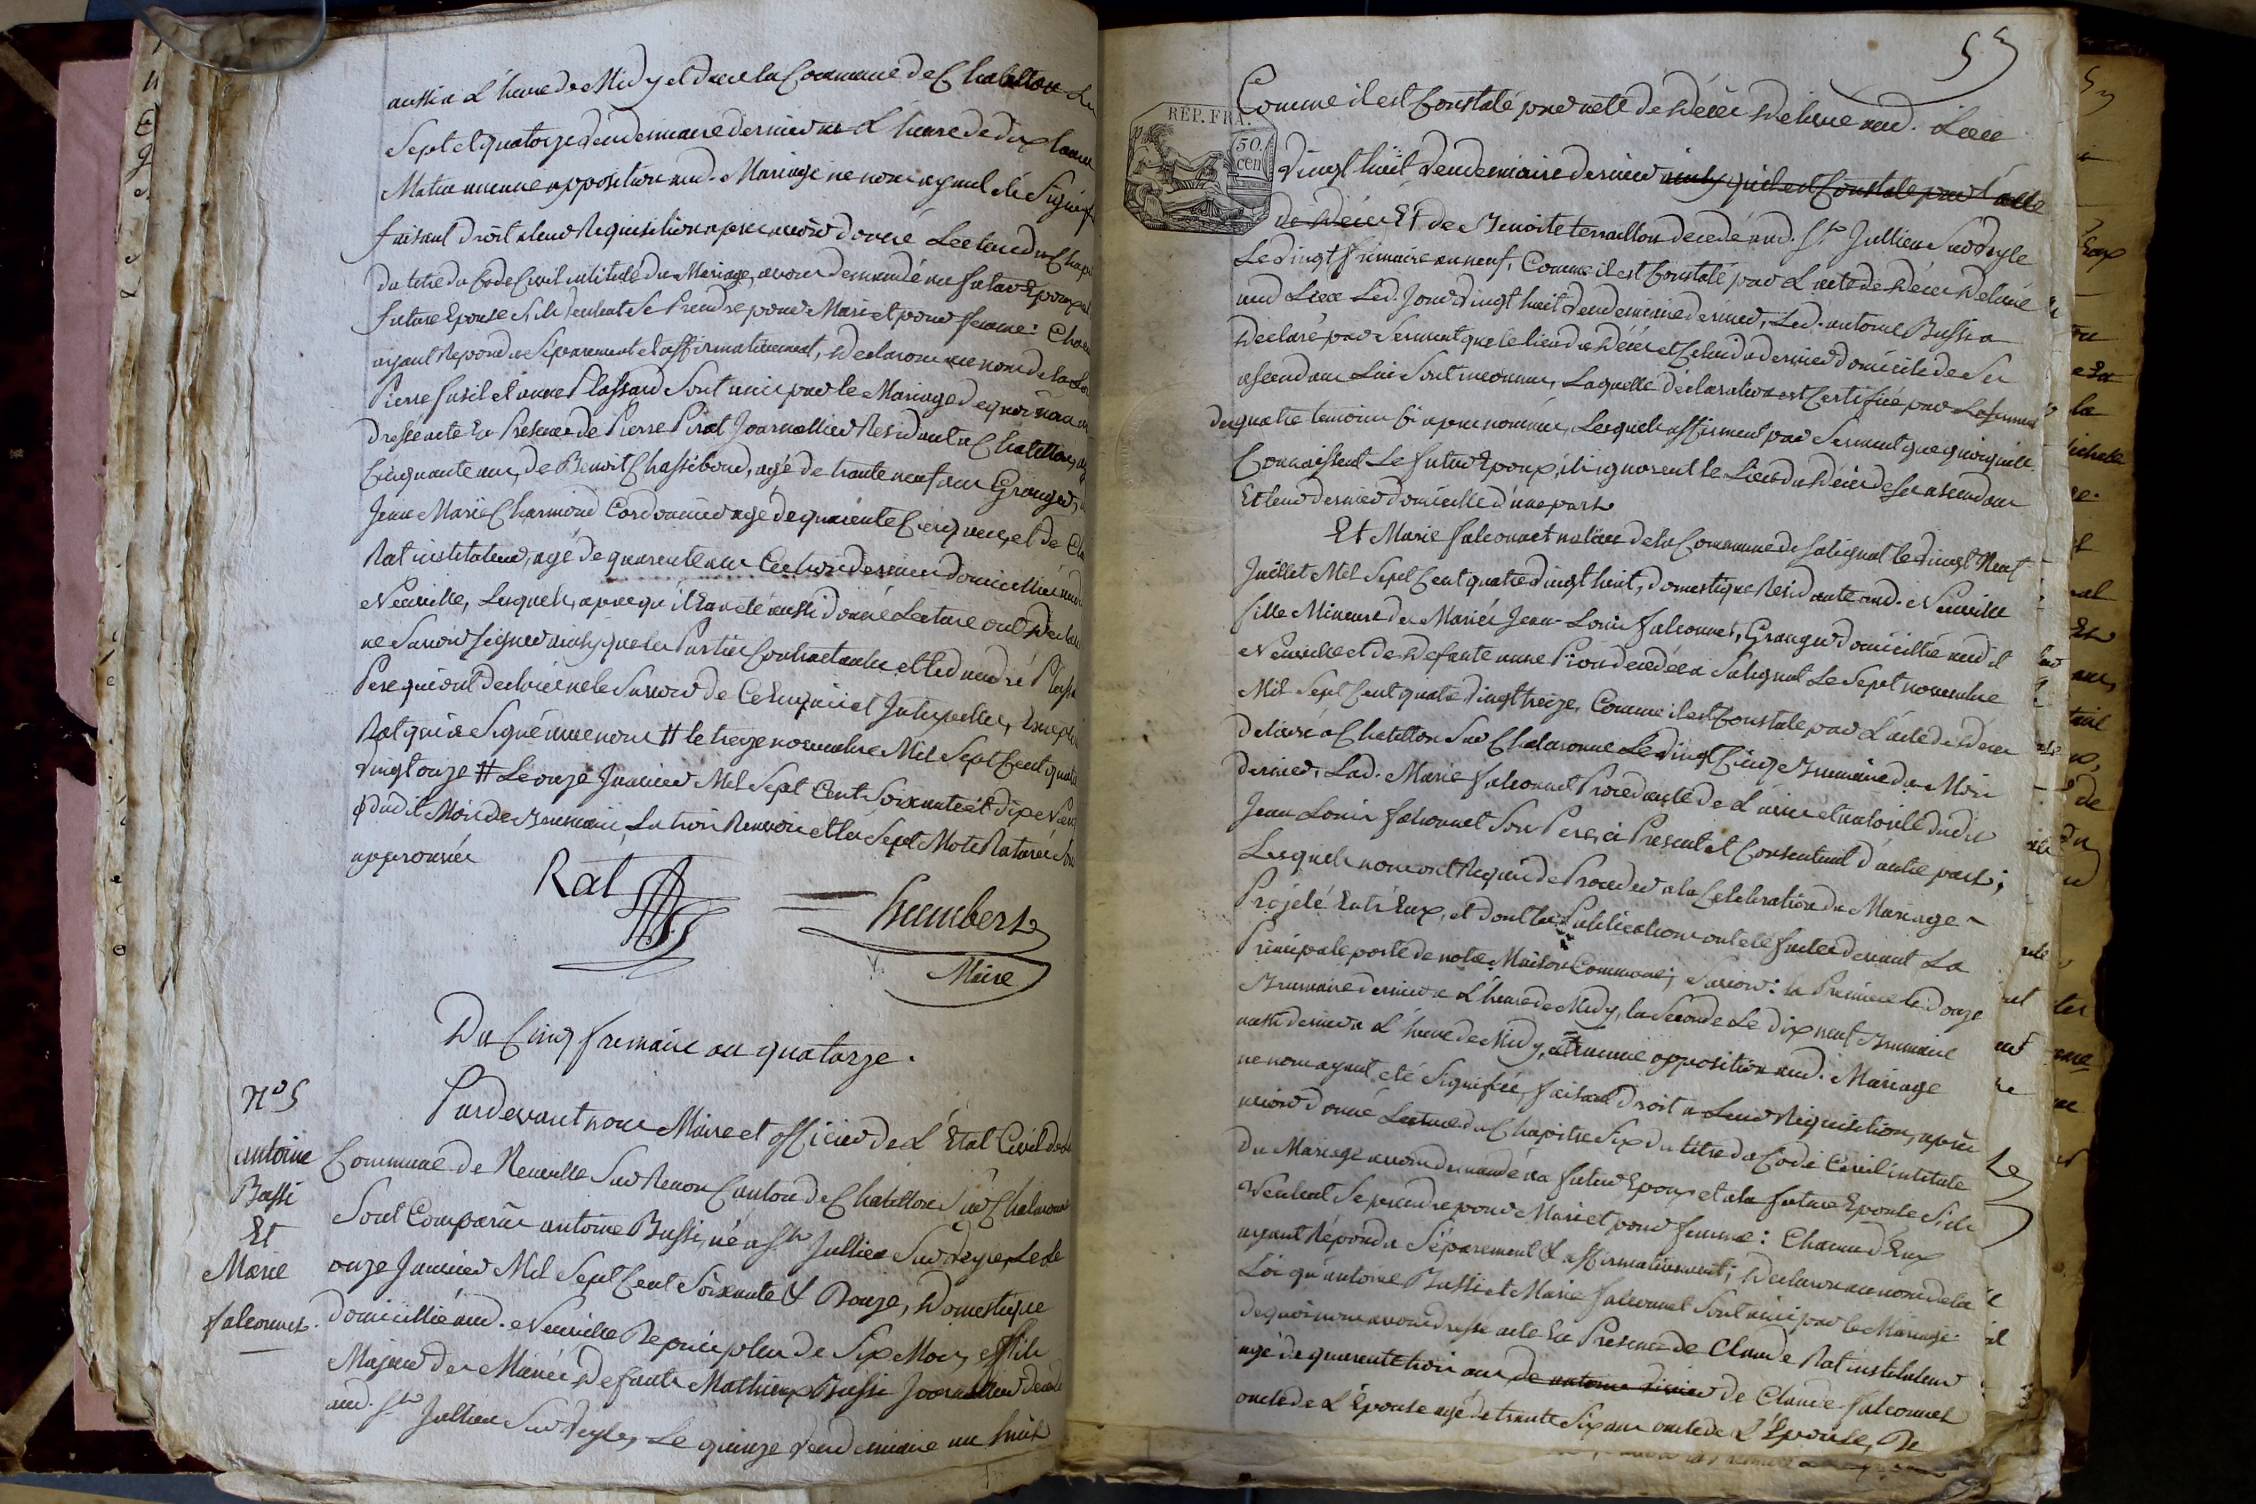 aussi a L'heure de Midy et dans la Commune de Chatillon Les
Sept et quatorze Vendemiaire dernier a L'heure de dix heures
Matin aucune opposition aud. Mariage ne nous ayant été Signifi
faisant droit a leur Requisition apres avoir donné Lecture du Chap
du titre du Code Civil intitulé du Mariage, avons demandé au futur Epoux et
future Epouse S'ils veulent Se Prendre pour Mari et pour femme: Chacun
ayant Repondu Séparement et affirmativement, Declarons au nom de la Loi
Pierre fusil et anne Plassard Sont unis par le Mariage de quoi nous av
dressé acte En Presence de Pierre Pirat Journallier Residant a Chatillon, ag
Cinquante ans, de Benoit Chassiboud, agé de trante neuf ans Granger,
Jean Marie Charmond Cordonnier agé de quarente Cinq ans, et de Cla
Rat instituteur, agé de quarente ans Ces trois derniers domicilliés aud
Neuville, Lesquels, apres qu'il Leur a été aussi donné Lecture ont declaré
ne Savoir signer ainsy que les Parties Contractantes et led. andré Plass
Pere qui ont declaré ne le Savoir de Ce Enquis et Interpellés, Excepté
Rat qui a Signé avec nous # le treze novembre Mil Sept Cent quatre
vingt onze # Le onze Janvier Mil Sept Cent Soixante et dix Neuf
ϕ dudit Mois de Brumaire, Les trois Renvois et les Sept Mots Raturés Sont
approuvés
Rat
humbert
Maire
Du Cinq frimaire an quatorze.
N° 5
antoine
Bussi
Et
Marie
falconnet.
Pardevant nous Maire et officier de L'Etat Civil de la
Commune de Neuville Sur Renon Canton de Chatillon Sur Chalaronne
Sont Comparûs antoine Bussi, né a St Jullien Sur Veyle, Le
onze Janvier Mil Sept Cent Soixante & Douze, Domestique
domicillié aud. Neuville Depuis plus de Six Mois, fils
Majeur des Mariés Defunts Mathieux Bussi Journallier decedé
aud. St Jullien Sur Veyle, Le quinze Vendemiaire an huit
53
REP. FRA.
50.
cen
Comme il est Constaté par acte de Décès Delivré aud. Lieu
Vingt huit Vendemiaire dernier ainsy qu'il est Constaté par l'acte
de Décès Et de Benoite terraillon decedé aud. St Jullien Sur Veyle
Le vingt frimaire an neuf, Comme il est Constaté par L'acte de Décès Delivré
aud Lieu Led. Jour Vingt huit Vendemiaire dernier, Led. antoine Bussi a
Declaré par Serment que le lieu du Décès et Celui du dernier domicile de Ses
ascendans Lui Sont inconnus, Laquelle déclaration est Certifiée par
des quatre temoins Ci apres nommés, Lesquels affirment par Serment que quoiqu'ils
Connaissent Le futur Epoux, ils ignorent le Lieu du Décès de Ses ascendans
Et leur dernier domicille d'une part
Et Marie falconnet native de la Commune de Salignat le vingt Neuf
Juillet Mil Sept Cent quatre vingt huit, domestique Residante aud. Neuville
fille Mineure des Mariés Jean-Louis falconnet, Granger domicillié aud it
Neuville et de Defunte anne Pion decedée a Salignat Le Sept novembre
Mil Sept Cent quatre vingt treize, Comme il est Constaté par L'acte de Décès
delivré a Chatillon Sur Chalaronne Le vingt Cinq Brumaire du Mois
dernier, Lad. Marie falconnet Procedante de L'avis et autorité dudit
Jean Louis falconnet Son Pere, ci Present et Consentent d'autre part;
Lesquels nous ont Requis de Proceder a la Celebration du Mariage
Projeté Entr'Eux, et dont les Publications ont été faites devant La
Principale porte de notre Maison Commune; Savoir: la Premiere le douze
Brumaire dernier a L'heure de Midy, la Seconde Le dix neuf Brumaire
aussi dernier a L'heure de Midy, aucune opposition aud. Mariage
ne nous ayant été Signifiée, faisant droit a Leur Requisition, après
avoir donné Lecture du Chapitre Six du titre du Code Civil intitulé
du Mariage avons demandé au futur Epoux et a la future Epouse S'ils
Veulent Se prendre pour Mari et pour femme: Chacun d'Eux
ayant Répondu Séparement & affirmativement; Declarons au nom de la
Loi qu'antoine Bussi et Marie falconnet Sont unis par le Mariage
de quoi nous avons dressé acte En Presence de Claude Rat instituteur
agé de quarente trois ans de antoine de Claude falconnet
oncle de L'Epouse agé de trante Six ans oncle de L'Epouse, De